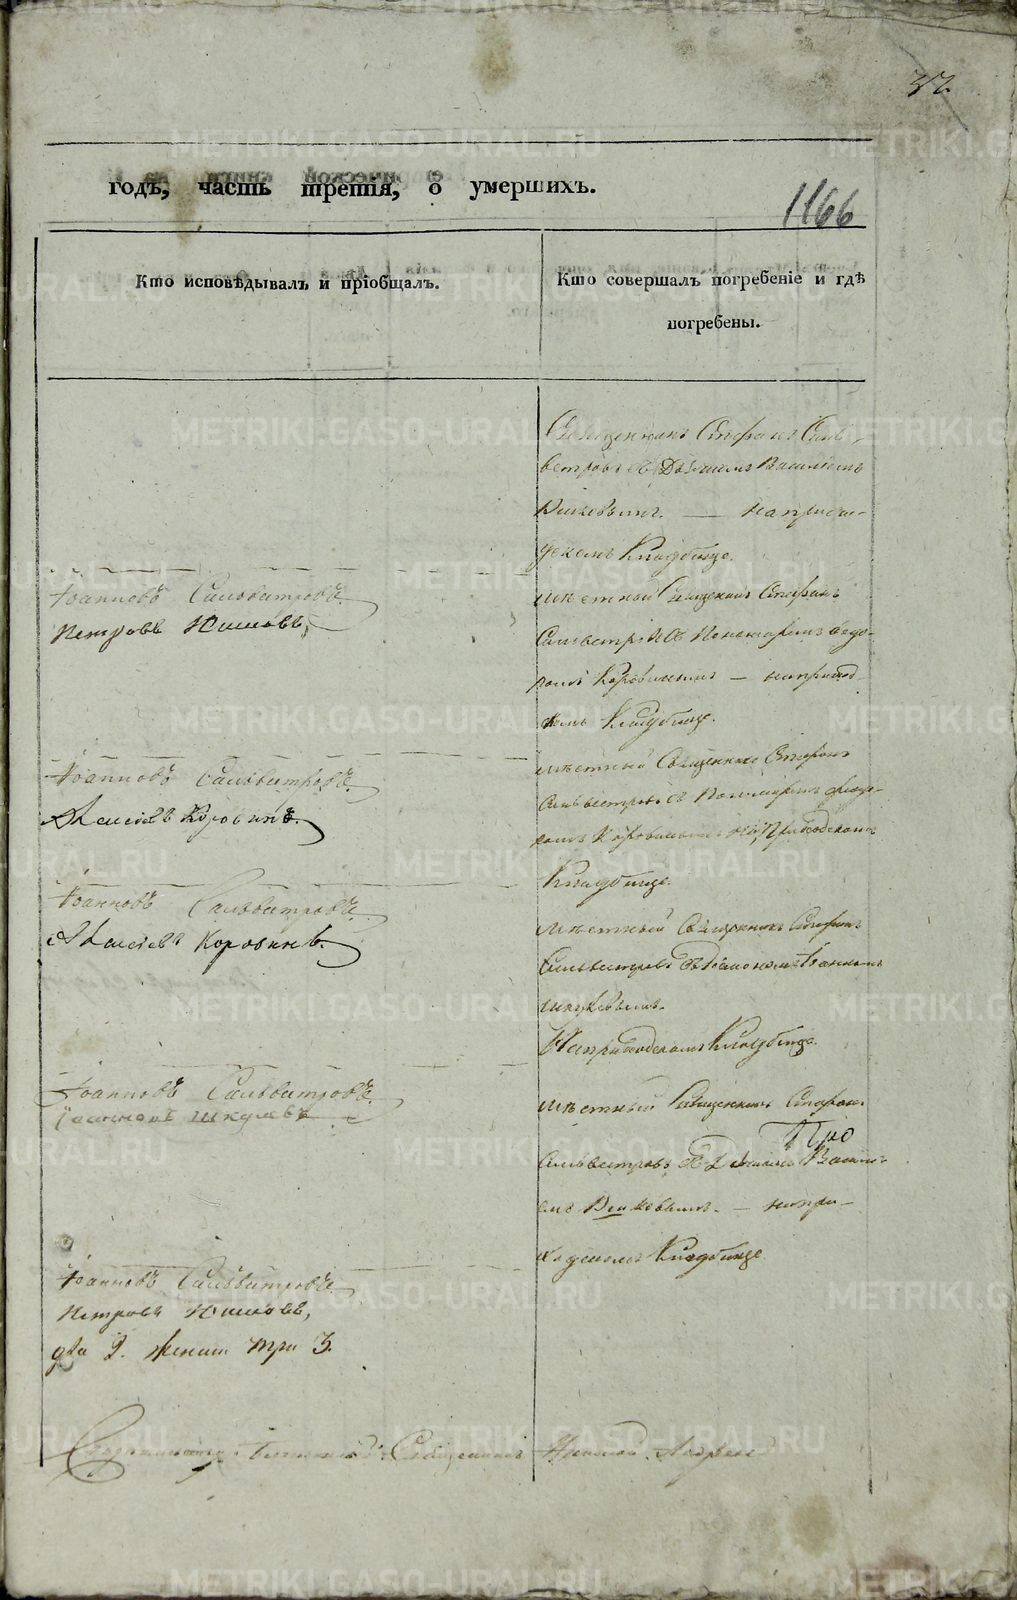 37.
годъ, часть третія, о умершихъ.
1166
Кто исповѣдывалъ и пріобщалъ.
Кто совершалъ погребеніе и гдѣ
погребены.
Священникъ Стефанъ Силь-
вестровъ съ Дьячкомъ Василіемъ
на приход-
скомъ Кладбище.
Іоанновъ Сильвестровъ.
Петровъ Юшковъ,
мѣстной Священникъ Стефанъ
Сильвестровъ съ Пономаремъ Федо-
ромъ Коровинымъ — на приход-
скомъ Кладбище.
Іоанновъ Сильвестровъ.
Алексѣевъ Коровинъ.
мѣстный Священникъ Стефанъ
Сильвестровъ съ Пономаремъ Федо-
ромъ Коровинымъ на Приходскомъ
Кладбище.
Іоанновъ Сильвестровъ.
Алексѣевъ Коровинъ.
мѣстный Священникъ Стефанъ
Сильвестровъ съ Діакономъ Іоанномъ
На приходскомъ Кладбище.
Іоанновъ Сильвестровъ.
Іоанновъ
мѣстный Священникъ Стефанъ
Сильвестровъ съ Дьячкомъ Васил-
емъ — на при-
ходскомъ Кладбище
Іоанновъ Сильвестровъ.
Петровъ Юшковъ,
два 2. женска три 3.
Священникъ Николай Андреевъ
METRIKI.GASO-URAL.RU